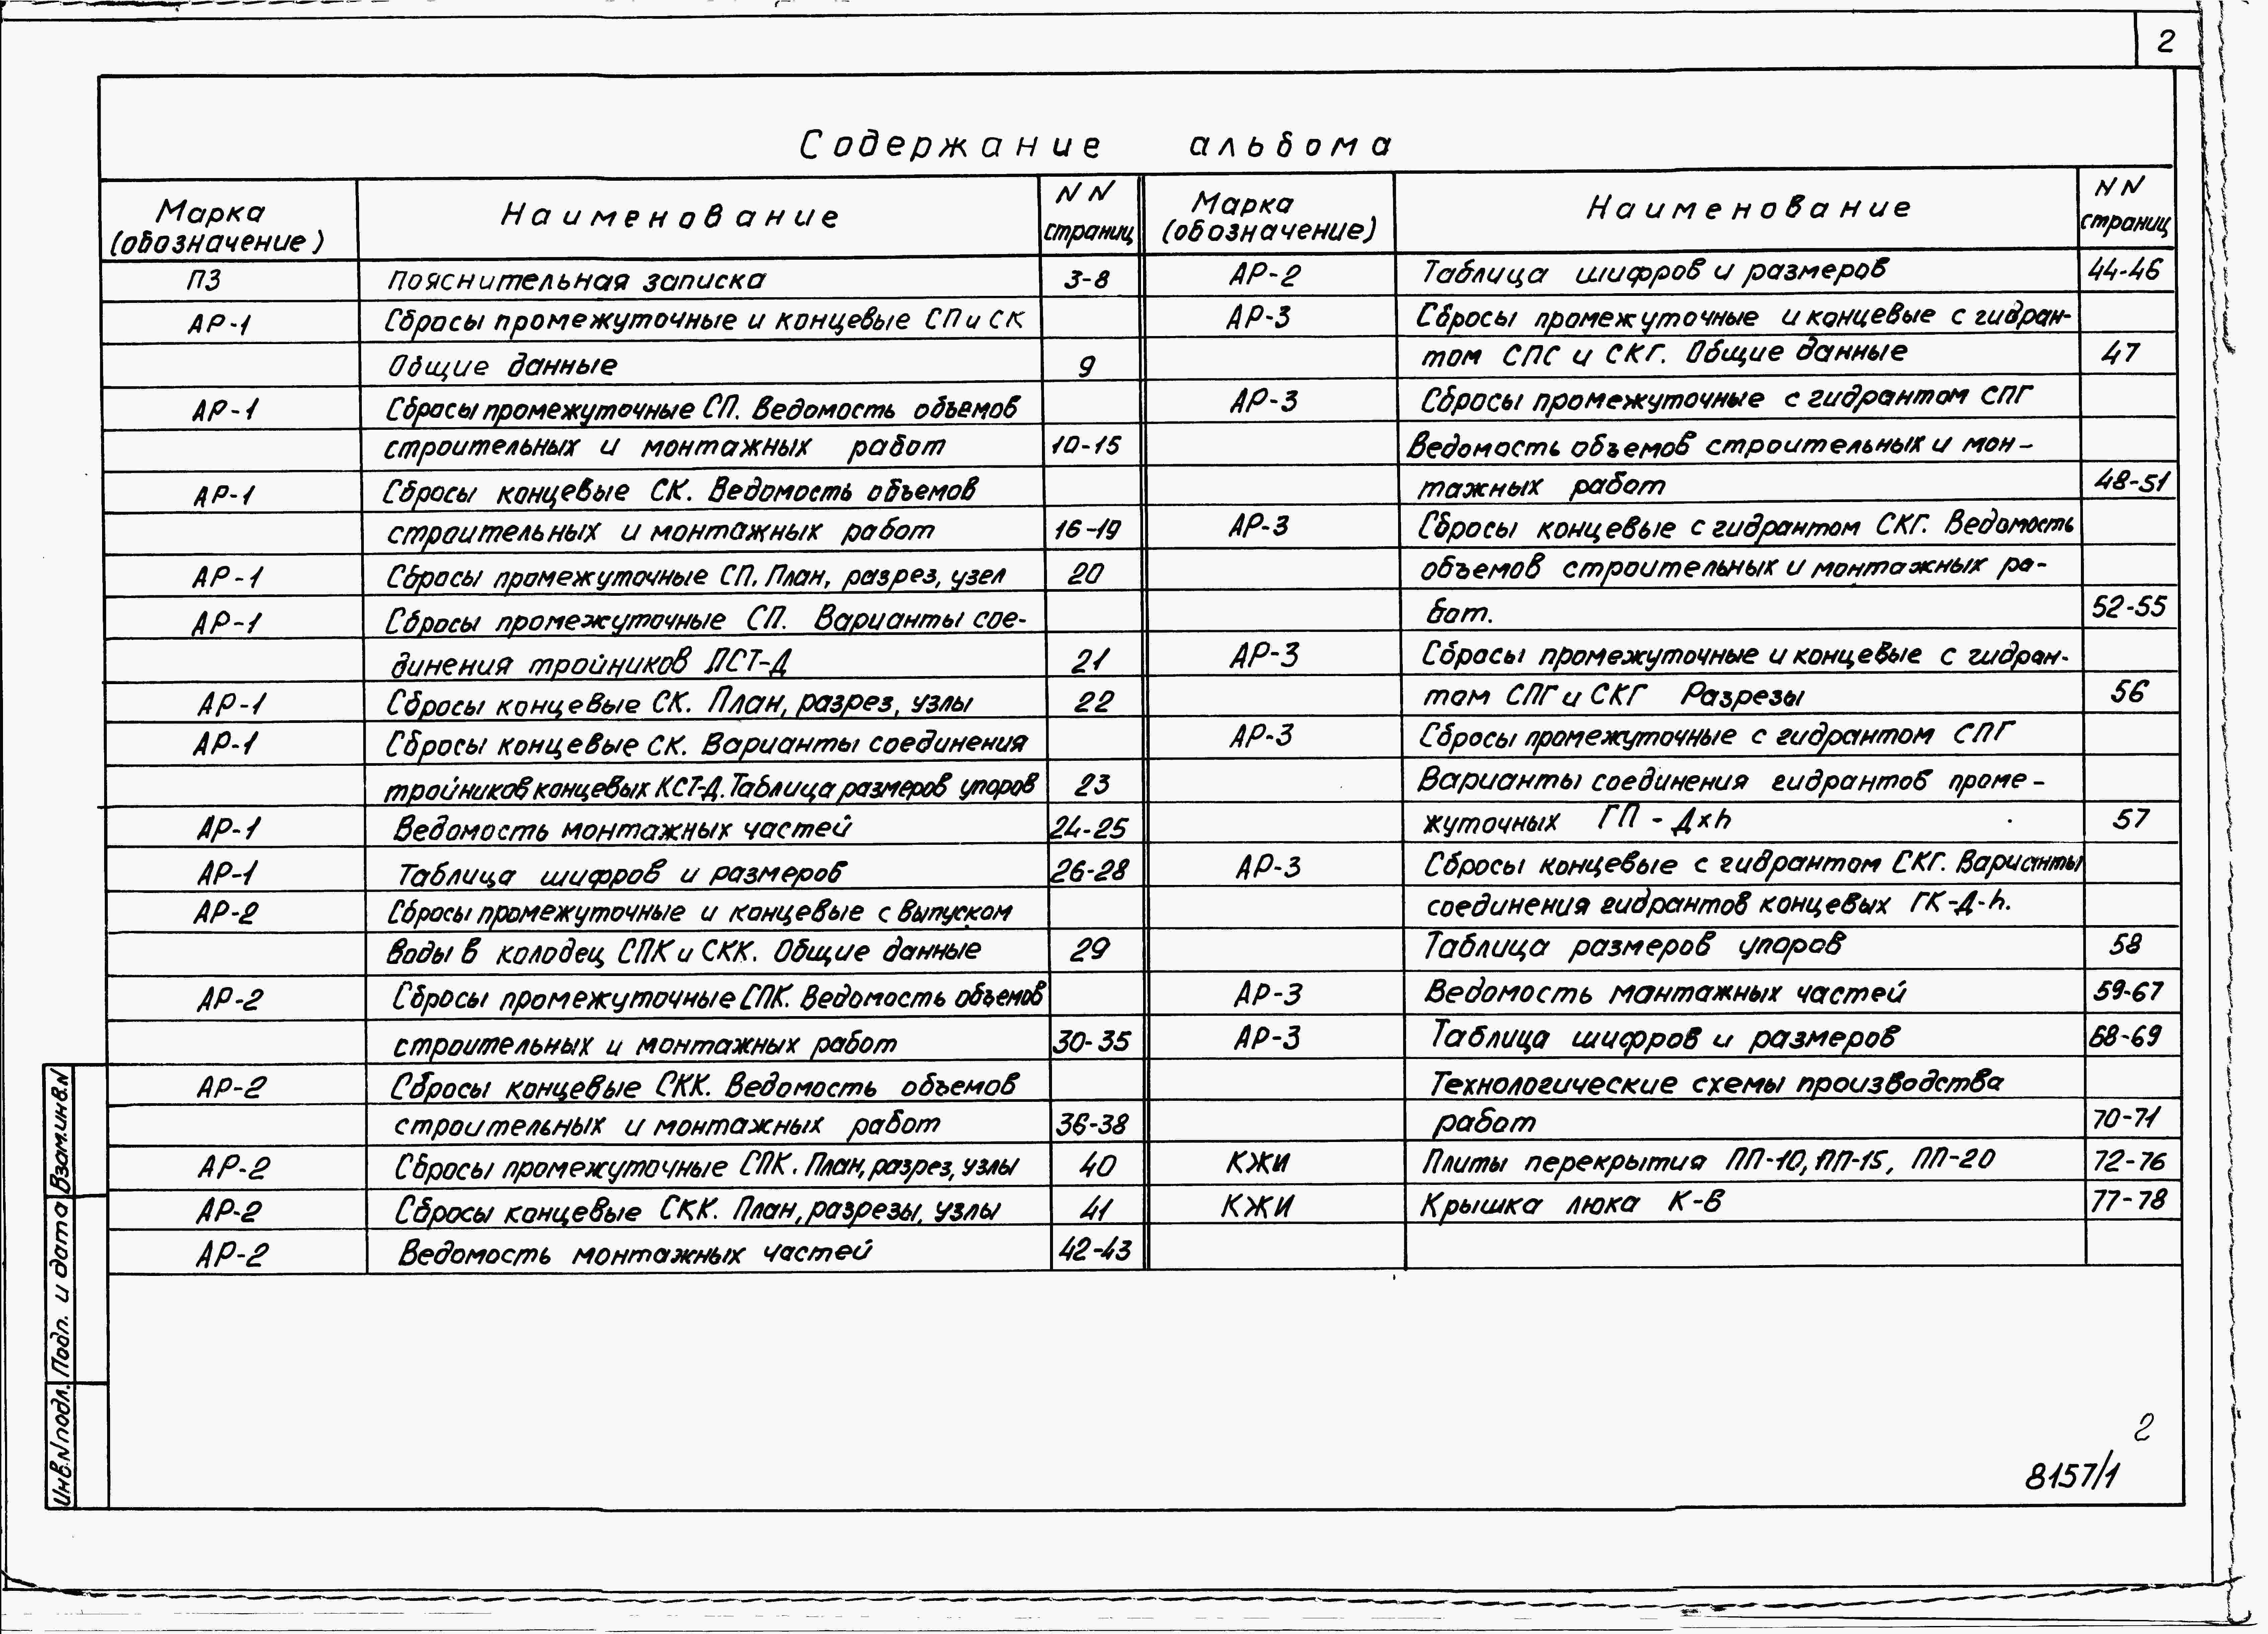 2
Содержание альбома
Марка (обозначение)
Наименование
NN страниц
Марка (обозначение)
Наименование
NN страниц
ПЗ Пояснительная записка 3-8
АР-1 Сбросы промежуточные и концевые СП и СК
Общие данные 9
АР-1 Сбросы промежуточные СП. Ведомость объемов
строительных и монтажных работ 10-15
АР-1 Сбросы концевые СК. Ведомость объемов
строительных и монтажных работ 16-19
АР-1 Сбросы промежуточные СП. План, разрез, узел 20
АР-1 Сбросы промежуточные СП. Варианты сое-
динения тройников ПСТ-Д 21
АР-1 Сбросы концевые СК. План, разрез, узлы 22
АР-1 Сбросы концевые СК. Варианты соединения
тройников концевых КСТ-Д. Таблица размеров упоров 23
АР-1 Ведомость монтажных частей 24-25
АР-1 Таблица шифров и размеров 26-28
АР-2 Сбросы промежуточные и концевые с выпуском
воды в колодец СПК и СКК. Общие данные 29
АР-2 Сбросы промежуточные СПК. Ведомость объемов
строительных и монтажных работ 30-35
АР-2 Сбросы концевые СКК. Ведомость объемов
строительных и монтажных работ 36-38
АР-2 Сбросы промежуточные СПК. План, разрез, узлы 40
АР-2 Сбросы концевые СКК. План, разрезы, узлы 41
АР-2 Ведомость монтажных частей 42-43
АР-2 Таблица шифров и размеров 44-46
АР-3 Сбросы промежуточные и концевые с гидран-
том СПС и СКГ. Общие данные 47
АР-3 Сбросы промежуточные с гидрантом СПГ
Ведомость объемов строительных и мон-
тажных работ 48-51
АР-3 Сбросы концевые с гидрантом СКГ. Ведомость
объемов строительных и монтажных ра-
бот. 52-55
АР-3 Сбросы промежуточные и концевые с гидран-
том СПГ и СКГ Разрезы 56
АР-3 Сбросы промежуточные с гидрантом СПГ
Варианты соединения гидрантов проме-
жуточных ГП - Дxh 57
АР-3 Сбросы концевые с гидрантом СКГ. Варианты
соединения гидрантов концевых ГК-Д-h.
Таблица размеров упоров 58
АР-3 Ведомость монтажных частей 59-67
АР-3 Таблица шифров и размеров 68-69
Технологические схемы производства
работ 70-71
КЖИ Плиты перекрытия ПП-10, ПП-15, ПП-20 72-76
КЖИ Крышка люка К-В 77-78
Взам.инв.N
Подп. и дата
Инв.N подл.
2
8157/1